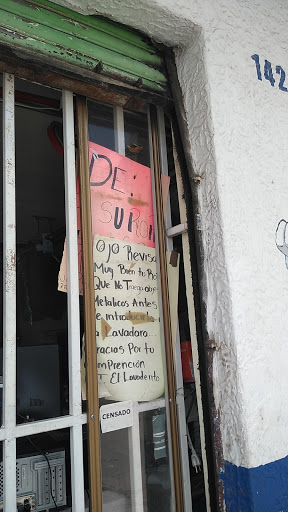 142
DE:
SURCI
OJO Revisa
Muy Bien tu Ro
Que No Traiga obje
Metalicos Antes
e introducir
a Lavadora..
racias Por tu
mPrención
El Lavadento
CENSADO